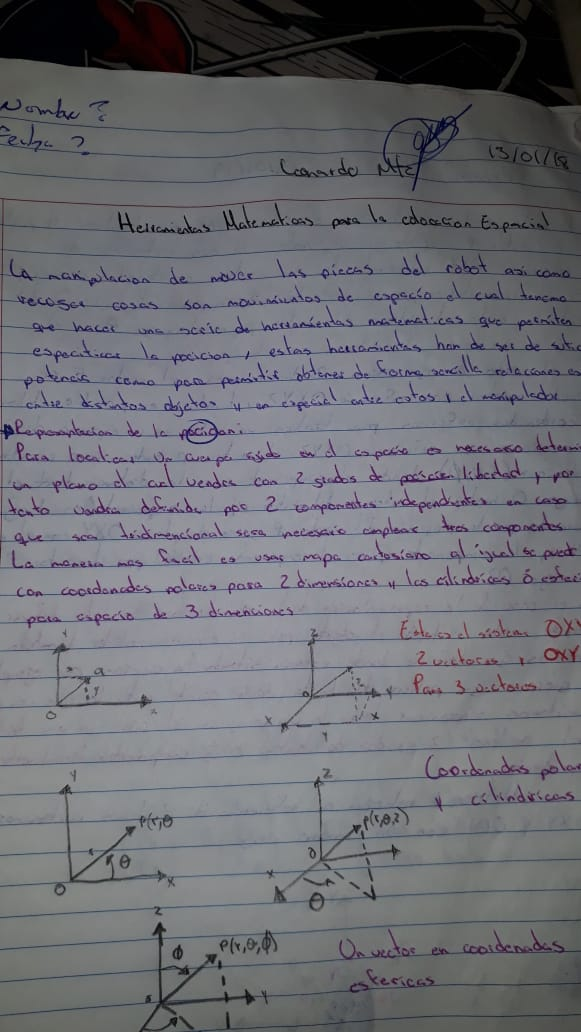 Nombre ?
Fecha ?
Leonardo Mtz
13/01/18
Herramientas Matematicas para la colocacion Espacial
La manipulacion de mover las piezas del robot asi como
recoger cosas son movimientos de espacio el cual tenemo
que hacer una serie de herramientas matematicas que permiten
especificar la posicion, estas herramientas han de ser de
potencia como para permitir obtener de forma sencilla relaciones
entre distintos objetos y en especial entre estos y el manipulador
Representacion de la posicion:
Para localizar un cuerpo rigido en el espacio es necesario determi
un plano el cual vendra con 2 grados de libertad, y por
tanto vendra definida por 2 componentes independientes en caso
que sea tridimencional sera necesario emplear tres componentes
La manera mas facil es usar mapa cartesiano al igual se pued
con coordenadas polares para 2 dimensiones y las cilindricas ó esferi
para espacio de 3 dimenciones
Y
x
a
y
O
x
Z
O
z
Y
X
Y
X
Este es el sistema OXY
2 vectores y OXY
Para 3 vectores
Y
P(r,θ
r
θ
O
X
Z
P(r,θ,z)
O
X
θ
Coordenadas polar
y cilindricas
Z
φ
P(r,θ,φ)
Y
Un vector en coordenadas
esfericas